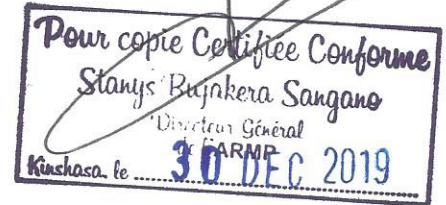 Pour copie Certifiee Conforme
Stanys Bujakera Sangano
Directeur Général
de l'ARMP
Kinshasa, le 30 DEC 2019